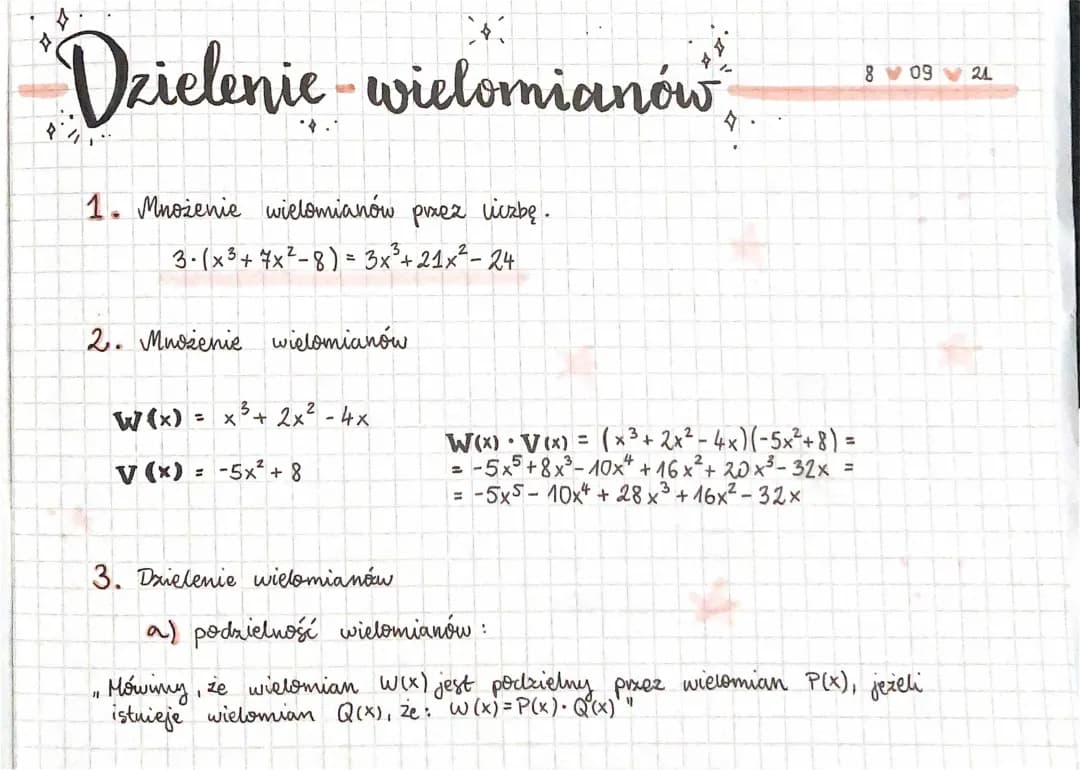 Dzielenie wielomianów
8 09 21
1. Mnożenie wielomianów przez liczbę.
3·(x³+7x²-8) = 3x³+21x²-24
2. Mnożenie wielomianów
W(x) = x³+ 2x² - 4x
V(x) = -5x² + 8
W(x) · V(x) = (x³+ 2x² - 4x)(-5x²+8) =
= -5x⁵+8x³-10x⁴ +16x²+ 20x³- 32x =
= -5x⁵- 10x⁴ + 28x³ +16x² - 32x
3. Dzielenie wielomianów
a) podzielność wielomianów :
„Mówimy, że wielomian W(x) jest podzielny przez wielomian P(x), jeżeli
istnieje wielomian Q(x), że: W(x) = P(x) · Q(x)"